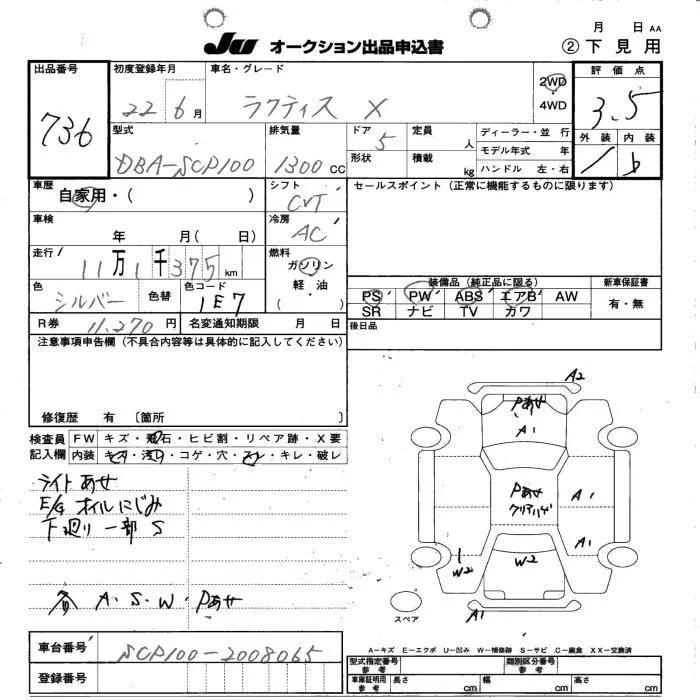 月 日 AA
JU オークション出品申込書
② 下見用
出品番号
736
初度登録年月
22 6月
車名・グレード
ラクティス X
2WD
4WD
評価点
3.5
型式
DBA-SCP100
排気量
1300 CC
ドア
5
形状
定員
人
積載
kg
ディーラー・並行
モデル年式 年
ハンドル 左・右
外装 内装
b
車歴
自家用・( )
シフト
CVT
セールスポイント (正常に機能するものに限ります)
車検
年 月( 日)
冷房
AC
走行
11万1千375km
燃料
ガソリン
軽油
( ・ )
色
シルバー
色替
色コード
1E7
装備品 (純正品に限る)
新車保証書
PS PW ABS エアB AW
SR ナビ TV カワ
有・無
R券
11,270円
名変通知期限 月 日
後日品
注意事項申告欄 (不具合内容等は具体的に記入してください)
修復歴 有 〔箇所 〕
検査員
記入欄
FW キズ・飛石・ヒビ割・リペア跡・X要
内装 キズ・汚れ・コゲ・穴・スレ・キレ・破レ
ライトあせ
E/G オイルにじみ
下廻り 一部 S
各 A・S・W・Pあせ
A2
Pあせ
A1
Pあせ
クリアハゲ
A1
A1
W2
W2
A1
スペア
A-キズ E-エクボ U-凹み W-補修跡 S-サビ C-腐食 XX-交換済
車台番号
SCP100-2008065
登録番号
型式指定番号
参考
類別区分番号
参考
車庫証明用
参考
長さ cm
幅 cm
高さ cm